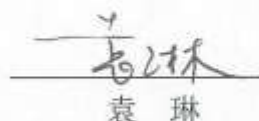 袁琳
袁 琳